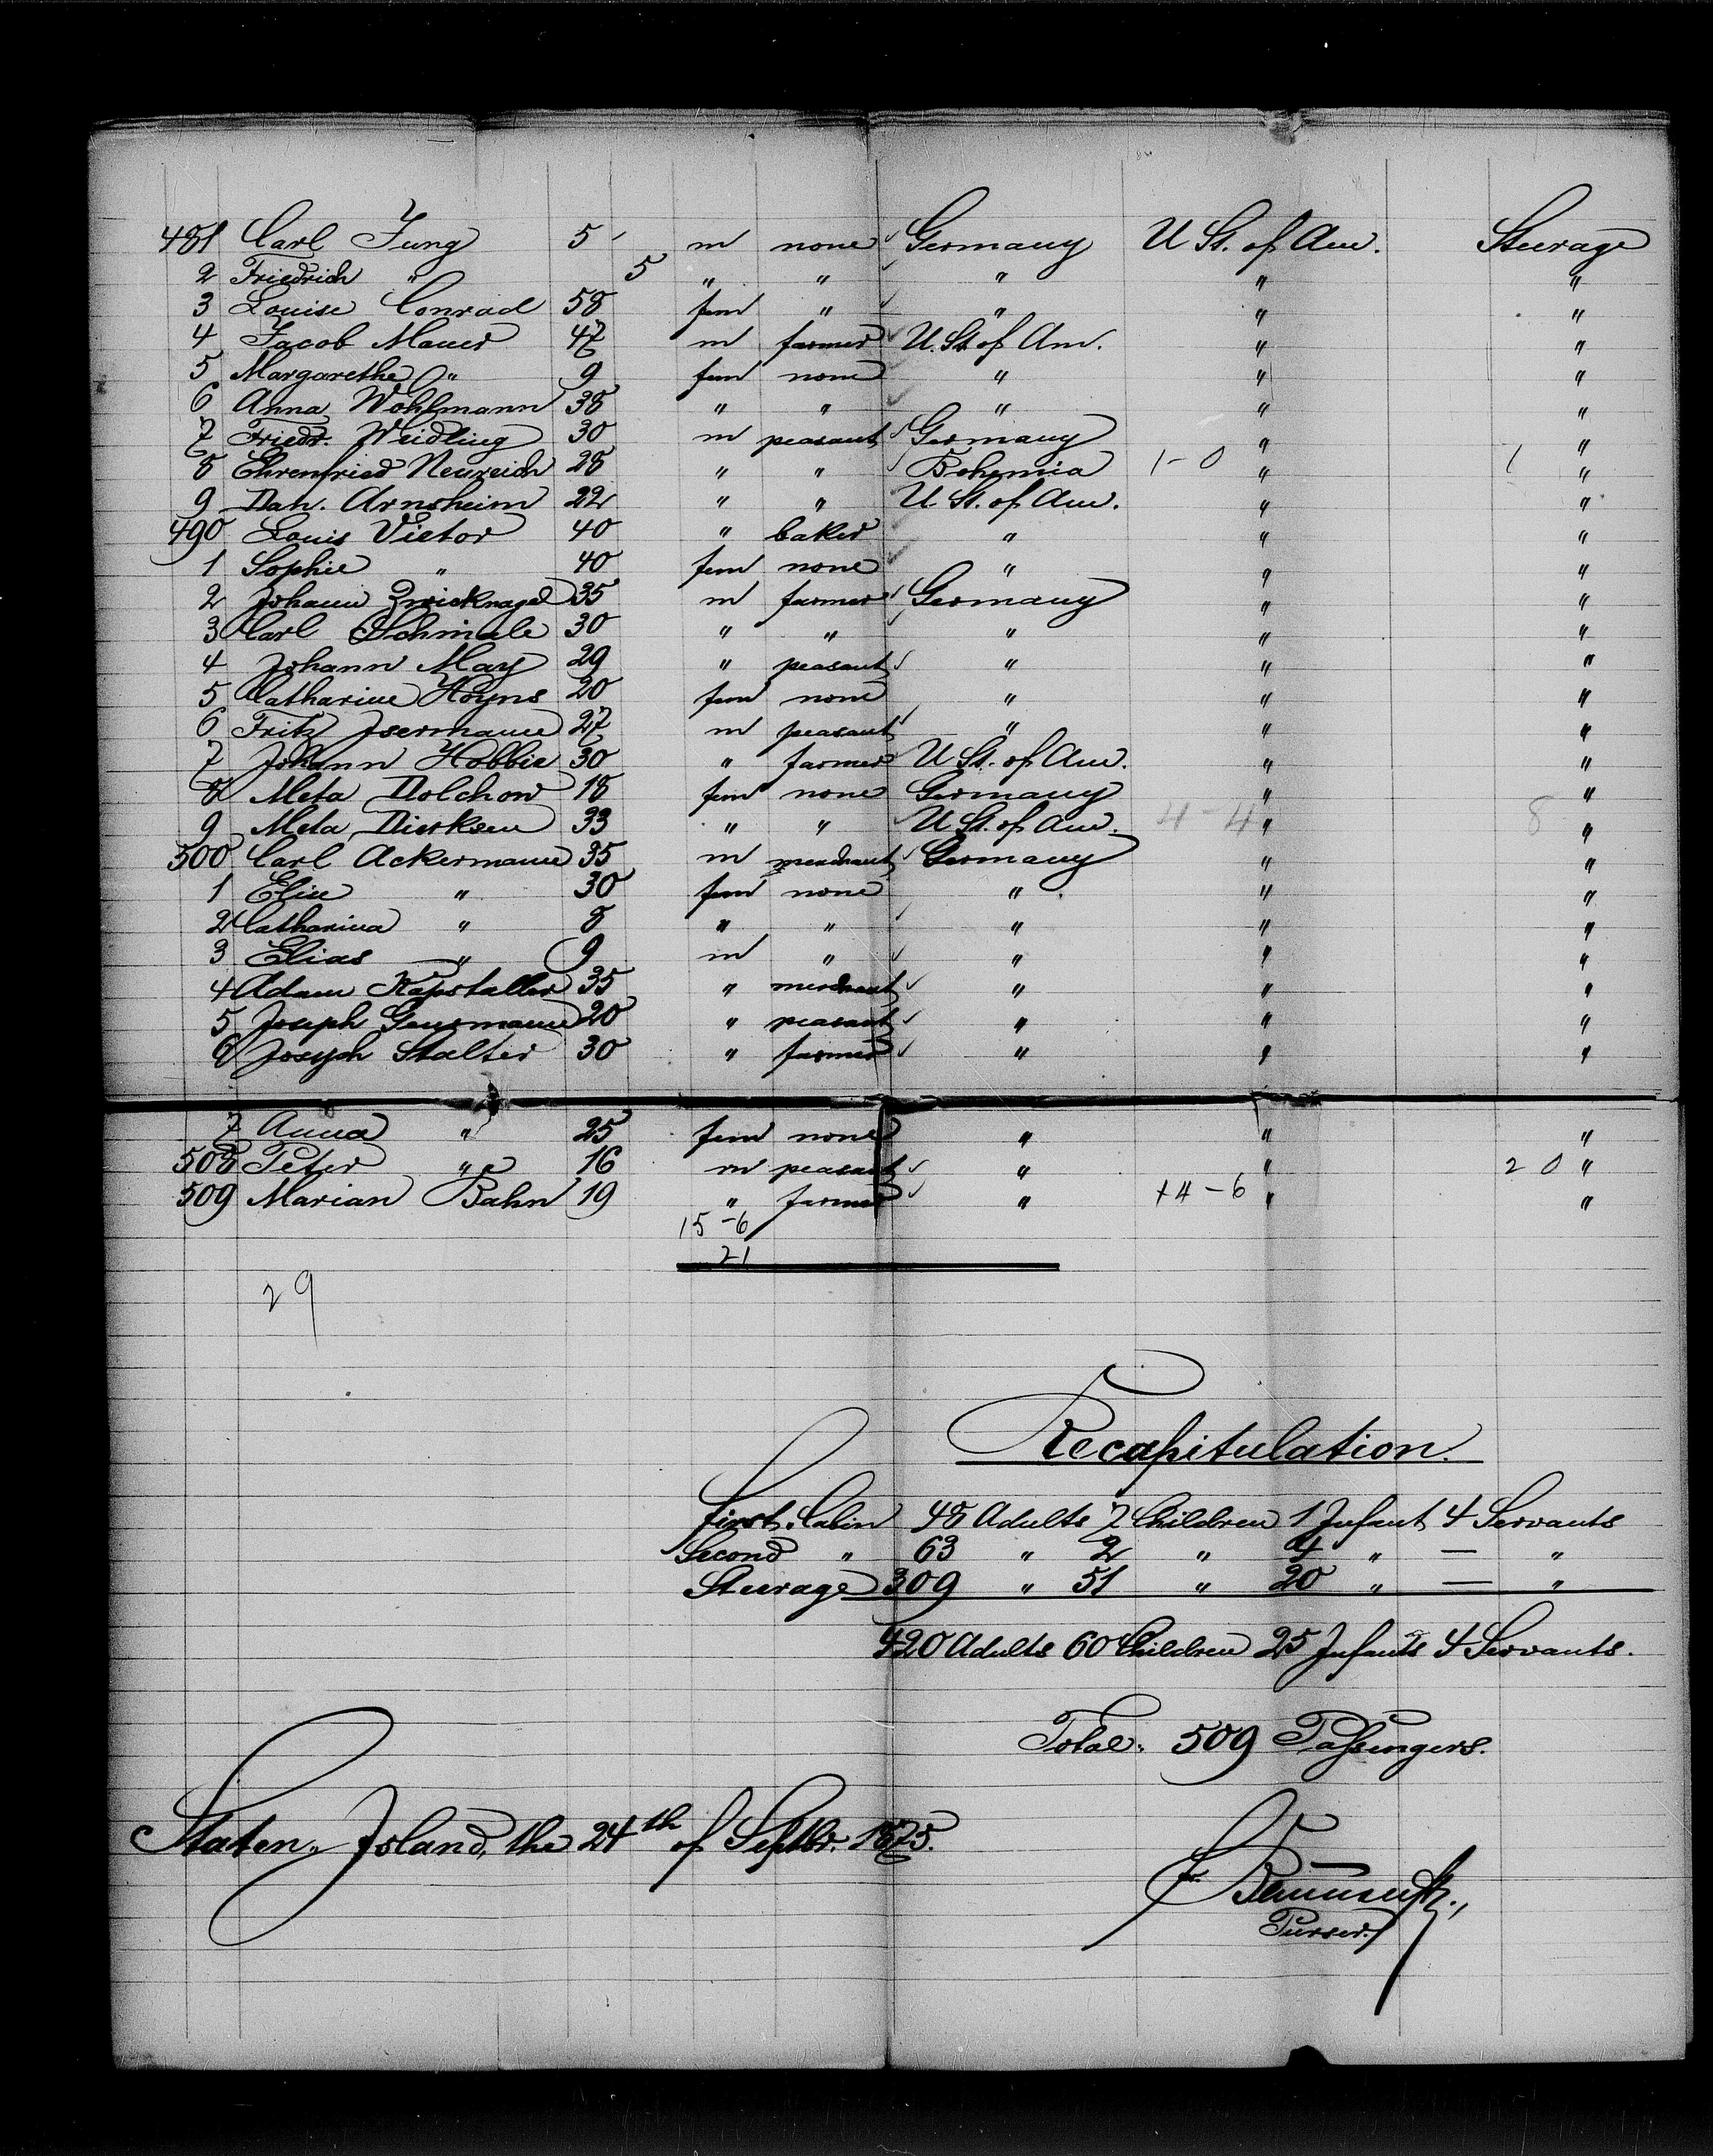 481 Carl Jung 5 m none Germany U St. of Am. Steerage
2 Friedrich " 5 " " " " "
3 Louise Conrad 58 fem " " " "
4 Jacob Mauer 47 m farmer U. St. of Am. " "
5 Margarethe " 9 fem none " " "
6 Anna Wohlmann 38 " " " " "
7 Friedr. Weidling 30 m peasant Germany " "
8 Ehrenfried Neureich 28 " " Bohemia 1-0 " 1 "
9 Dan. Arnsheim 22 " " U St. of Am. " "
490 Louis Victor 40 " baker " " "
1 Sophie " 40 fem none " " "
2 Johann Zwicknagel 35 m farmer Germany " "
3 Carl Schmale 30 " " " " "
4 Johann May 29 " peasant " " "
5 Catharine Hoyns 20 fem none " " "
6 Fritz Isermann 27 m peasant " " "
7 Johann Hobbie 30 " farmer U St. of Am. " "
8 Meta Dolchow 18 fem none Germany " "
9 Meta Dierksen 33 " " U St. of Am. 4-4 " 8 "
500 Carl Ackermann 35 m merchant Germany " "
1 Elise " 30 fem none " " "
2 Catharina " 8 " " " " "
3 Elias " 9 m " " " "
4 Adam Kapstaller 35 " merchant " " "
5 Joseph 20 " peasant " " "
6 Joseph Stalter 30 " farmer " " "
7 Anna " 25 fem none " " "
508 Peter " 16 m peasant " " 20 "
509 Marian Bahn 19 " farmer " 14-6 " "
15-6
21
29
Recapitulation.
First Cabin 48 Adults 7 Children 1 Infant 4 Servants
Second " 63 " 2 " 4 " — "
Steerage 309 " 51 " 20 " — "
420 Adults 60 Children 25 Infants 4 Servants.
Total: 509 Passengers.
Staten Island, the 24th of Septbr. 1875.
Purser